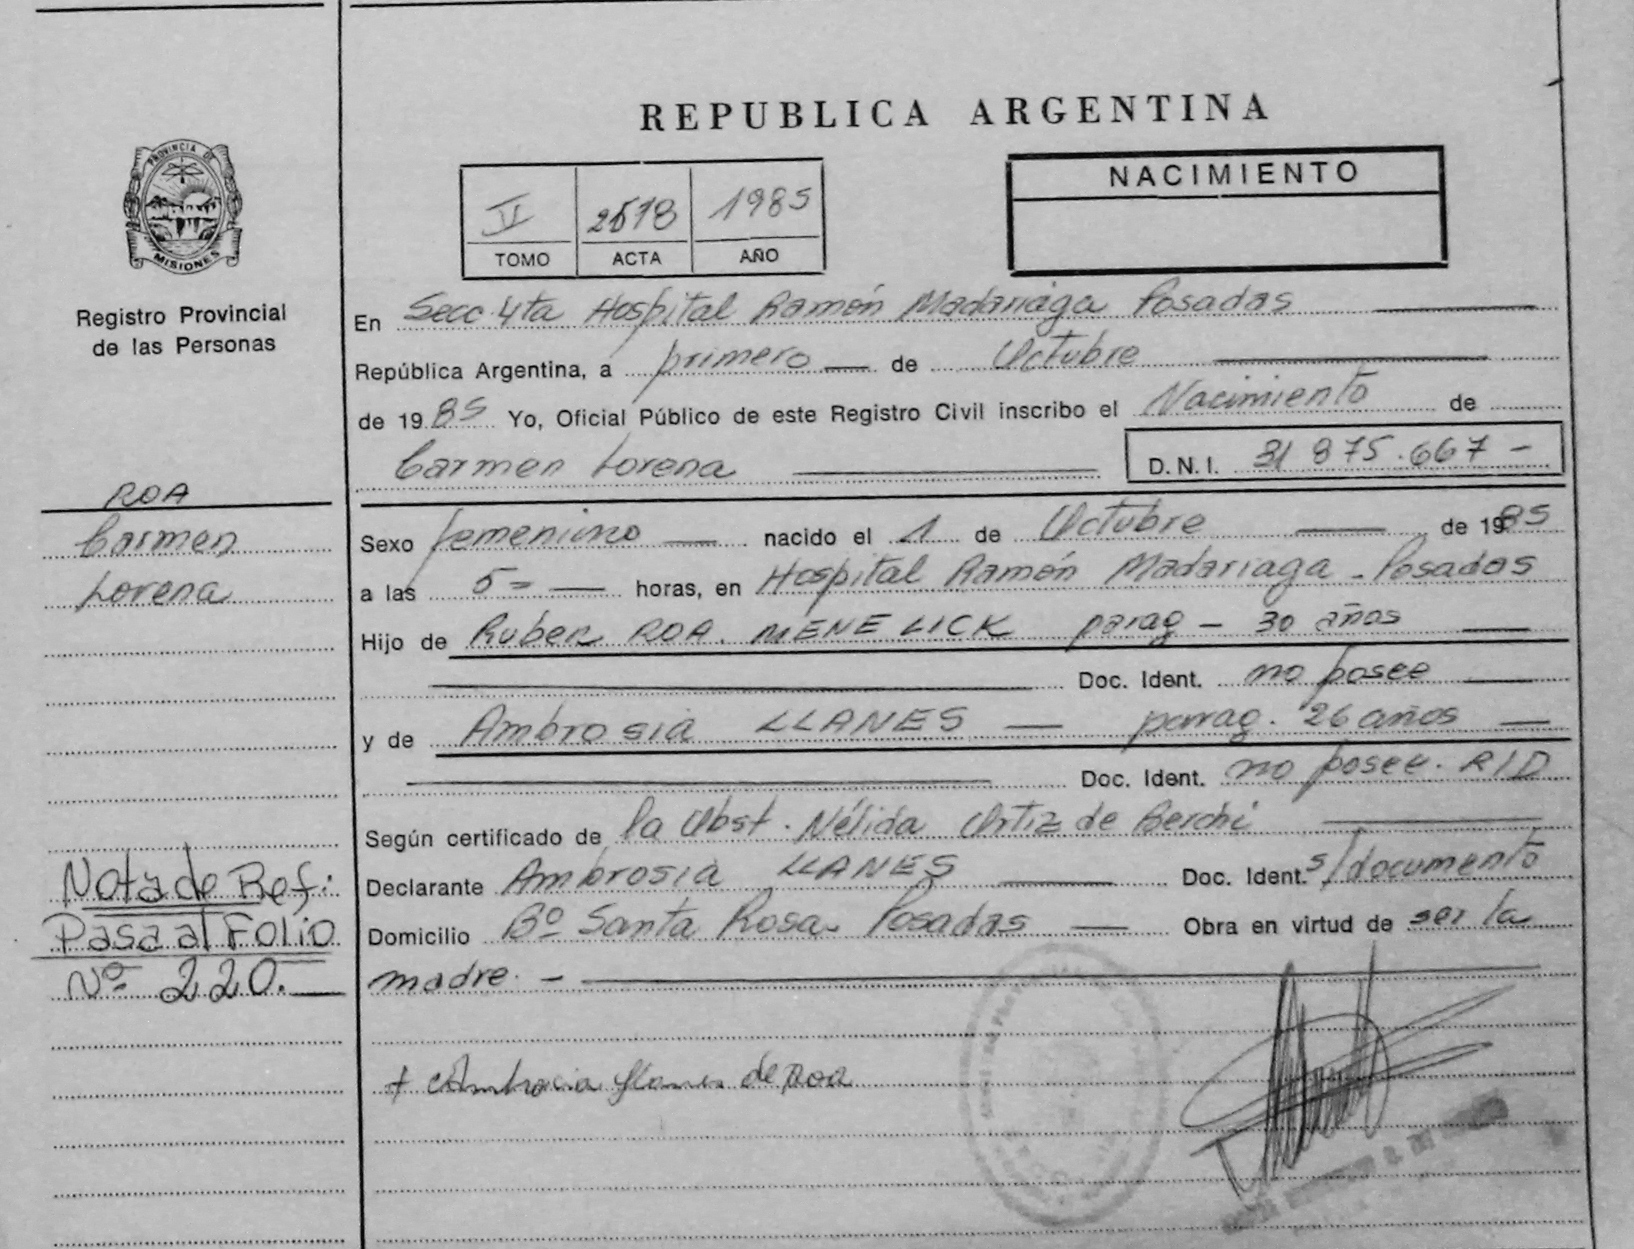 REPUBLICA ARGENTINA
PROVINCIA DE
MISIONES
Registro Provincial
de las Personas
II 2518 1985
TOMO ACTA AÑO
NACIMIENTO
En Secc 4ta Hospital Ramón Madariaga Posadas
República Argentina, a primero de Octubre
de 1985 Yo, Oficial Público de este Registro Civil inscribo el Nacimiento de
Carmen Lorena D. N. I. 31 875.667 -
ROA
Carmen
Lorena
Sexo femenino nacido el 1 de Octubre de 1985
a las 5= horas, en Hospital Ramón Madariaga - Posadas
Hijo de Ruber ROA. MENELICK parag - 30 años
Doc. Ident. no posee
y de Ambrosia LLANES parag. 26 años
Doc. Ident. no posee. RID
Según certificado de la Obst. Nélida Ortiz de Berchi
Declarante Ambrosia LLANES Doc. Ident. s/documento
Domicilio Bº Santa Rosa. Posadas Obra en virtud de ser la
madre. -
Nota de Ref.:
Pasa al Folio
Nº 220.
+ Ambrosia Llanes de Roa